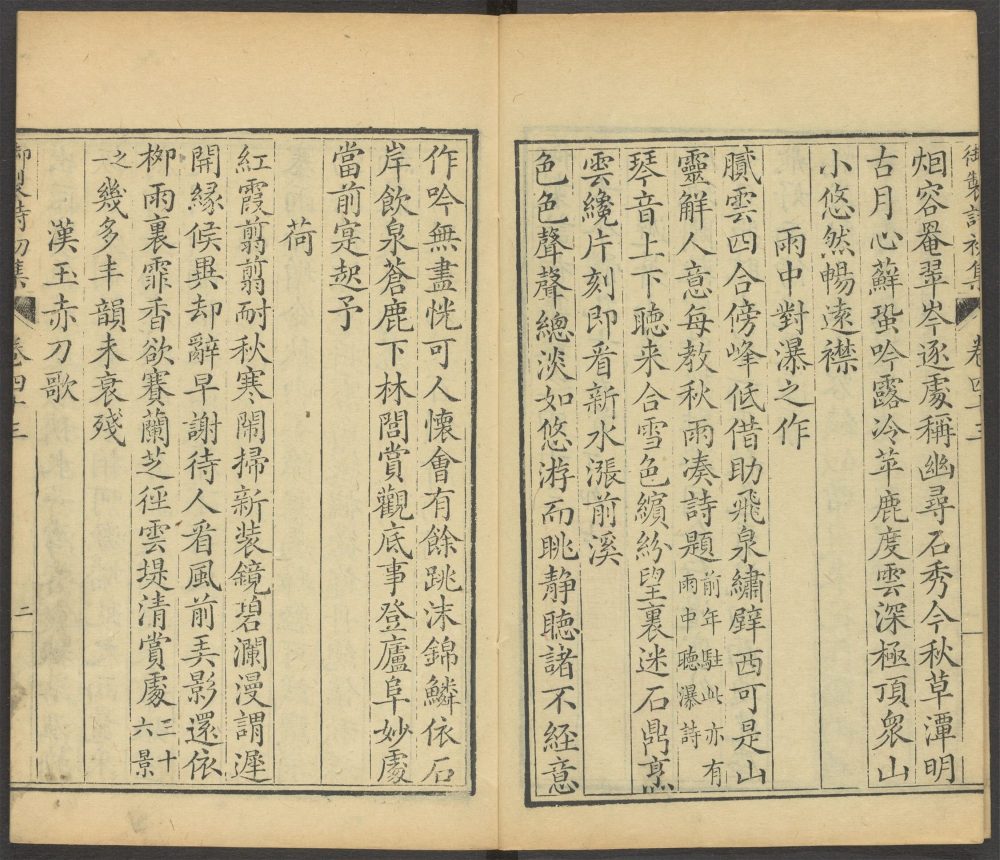 御製詩初集 卷四十三 一
烟容罨翠岑逐處稱幽尋石秀今秋草潭明
古月心蘚蛩吟露冷苹鹿度雲深極頂衆山
小悠然暢遠襟
雨中對瀑之作
膩雲四合傍峰低借助飛泉繡壁西可是山
靈解人意每教秋雨凑詩題前年駐此亦有雨中聽瀑詩
琴音上下聽来合雪色繽紛望裏迷石鼎烹
雲纔片刻即看新水漲前溪
色色聲聲總淡如悠游而眺静聽諸不経意
作吟無盡恍可人懷會有餘跳沫錦鱗依石
岸飲泉蒼鹿下林閭賞觀底事登廬阜妙處
當前寔起予
荷
紅霞翦翦耐秋寒閙掃新装鏡碧瀾漫謂遲
開緣候異却辭早謝待人看風前弄影還依
柳雨裏霏香欲賽蘭芝徑雲堤清賞處三十六景
之一幾多丰韻未衰殘
漢玉赤刀歌
御製詩初集 卷四十三 二